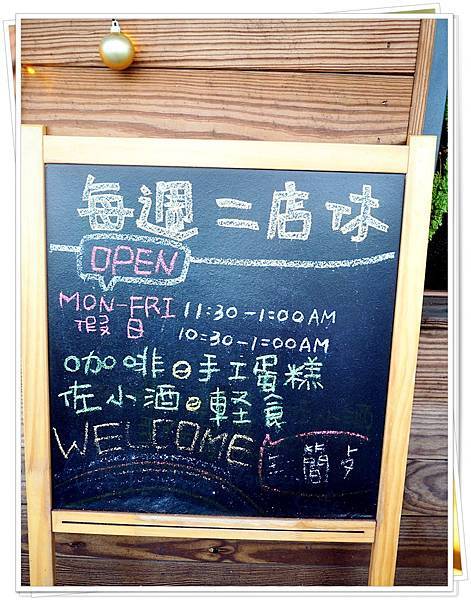 每週二店休
OPEN
MON-FRI 11:30-1:00AM
假日 10:30-1:00AM
咖啡手工蛋糕
佐小酒輕食
WELCOME
簡